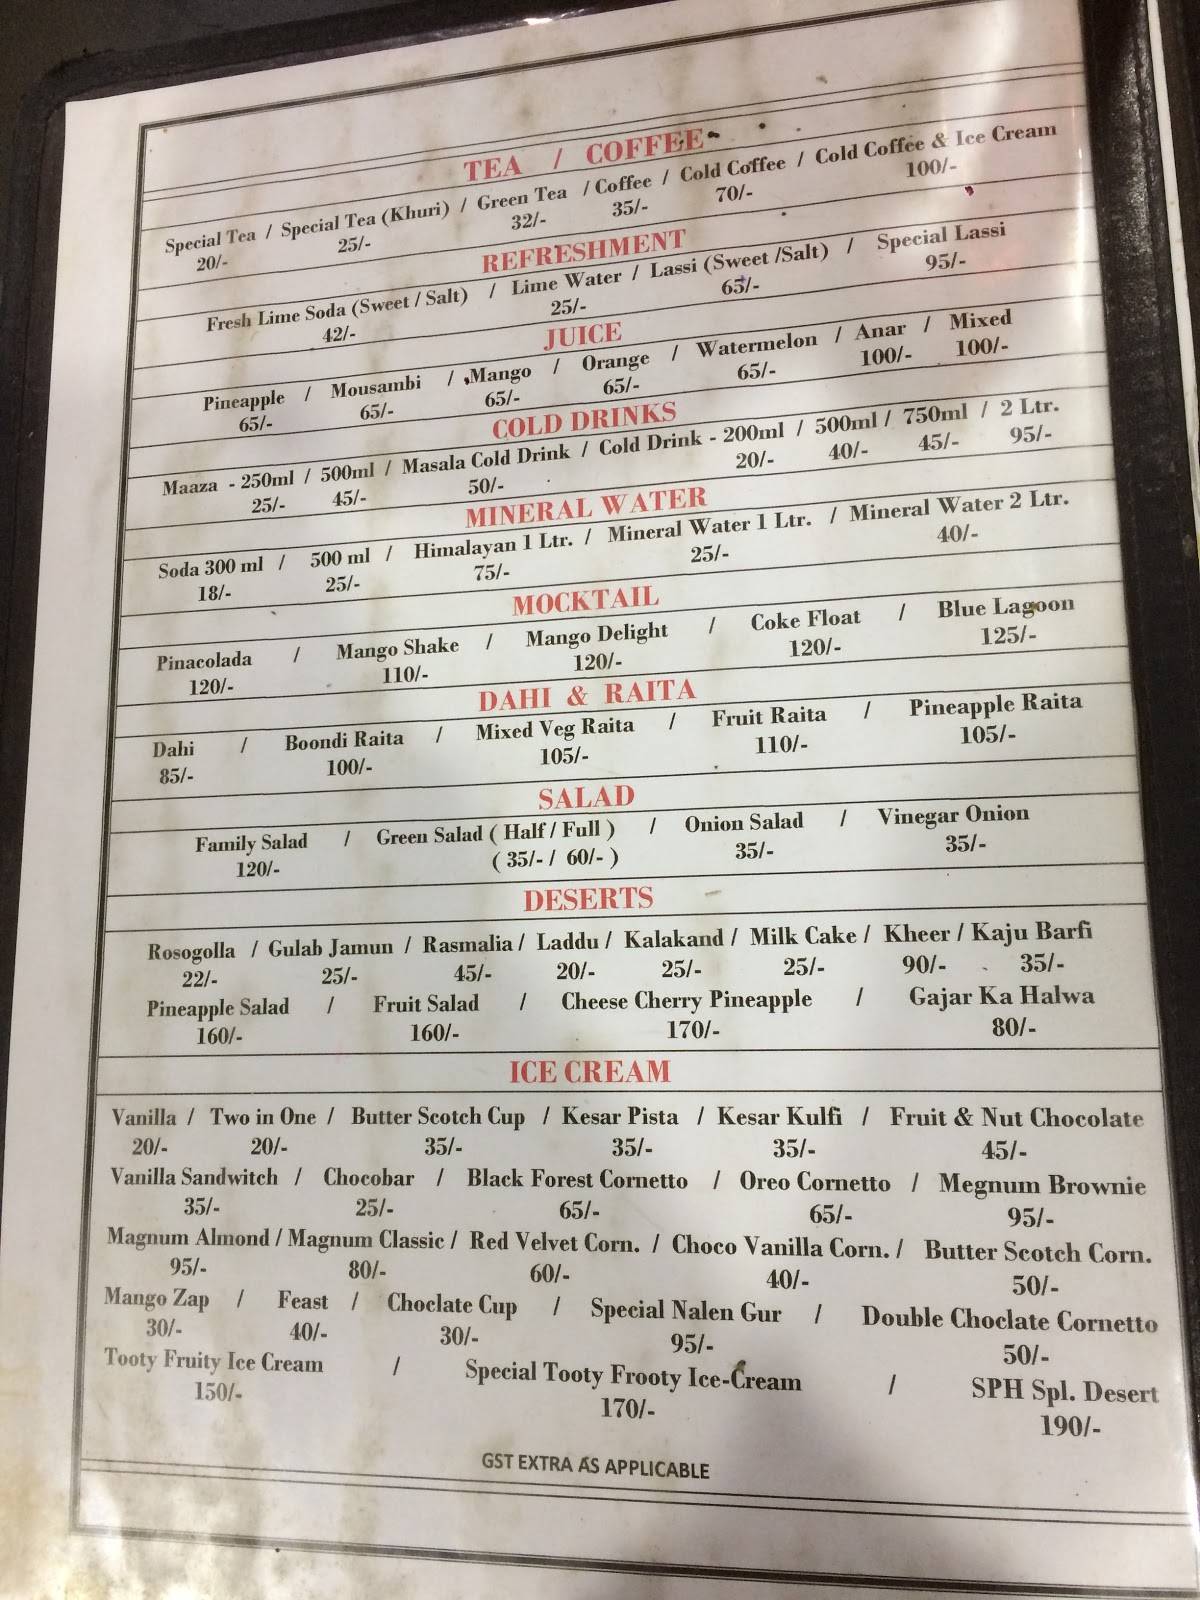 TEA / COFFEE
Special Tea / Special Tea (Khuri) / Green Tea / Coffee / Cold Coffee / Cold Coffee & Ice Cream
20/- 25/- 32/- 35/- 70/- 100/-
REFRESHMENT
Fresh Lime Soda (Sweet / Salt) / Lime Water / Lassi (Sweet /Salt) / Special Lassi
42/- 25/- 65/- 95/-
JUICE
Pineapple / Mousambi / Mango / Orange / Watermelon / Anar / Mixed
65/- 65/- 65/- 65/- 65/- 100/- 100/-
COLD DRINKS
Maaza - 250ml / 500ml / Masala Cold Drink / Cold Drink - 200ml / 500ml / 750ml / 2 Ltr.
25/- 45/- 50/- 20/- 40/- 45/- 95/-
MINERAL WATER
Soda 300 ml / 500 ml / Himalayan 1 Ltr. / Mineral Water 1 Ltr. / Mineral Water 2 Ltr.
18/- 25/- 75/- 25/- 40/-
MOCKTAIL
Pinacolada / Mango Shake / Mango Delight / Coke Float / Blue Lagoon
120/- 110/- 120/- 120/- 125/-
DAHI & RAITA
Dahi / Boondi Raita / Mixed Veg Raita / Fruit Raita / Pineapple Raita
85/- 100/- 105/- 110/- 105/-
SALAD
Family Salad / Green Salad ( Half / Full ) / Onion Salad / Vinegar Onion
120/- ( 35/- / 60/- ) 35/- 35/-
DESERTS
Rosogolla / Gulab Jamun / Rasmalia / Laddu / Kalakand / Milk Cake / Kheer / Kaju Barfi
22/- 25/- 45/- 20/- 25/- 25/- 90/- 35/-
Pineapple Salad / Fruit Salad / Cheese Cherry Pineapple / Gajar Ka Halwa
160/- 160/- 170/- 80/-
ICE CREAM
Vanilla / Two in One / Butter Scotch Cup / Kesar Pista / Kesar Kulfi / Fruit & Nut Chocolate
20/- 20/- 35/- 35/- 35/- 45/-
Vanilla Sandwitch / Chocobar / Black Forest Cornetto / Oreo Cornetto / Megnum Brownie
35/- 25/- 65/- 65/- 95/-
Magnum Almond / Magnum Classic / Red Velvet Corn. / Choco Vanilla Corn. / Butter Scotch Corn.
95/- 80/- 60/- 40/- 50/-
Mango Zap / Feast / Choclate Cup / Special Nalen Gur / Double Choclate Cornetto
30/- 40/- 30/- 95/- 50/-
Tooty Fruity Ice Cream / Special Tooty Frooty Ice-Cream / SPH Spl. Desert
150/- 170/- 190/-
GST EXTRA AS APPLICABLE